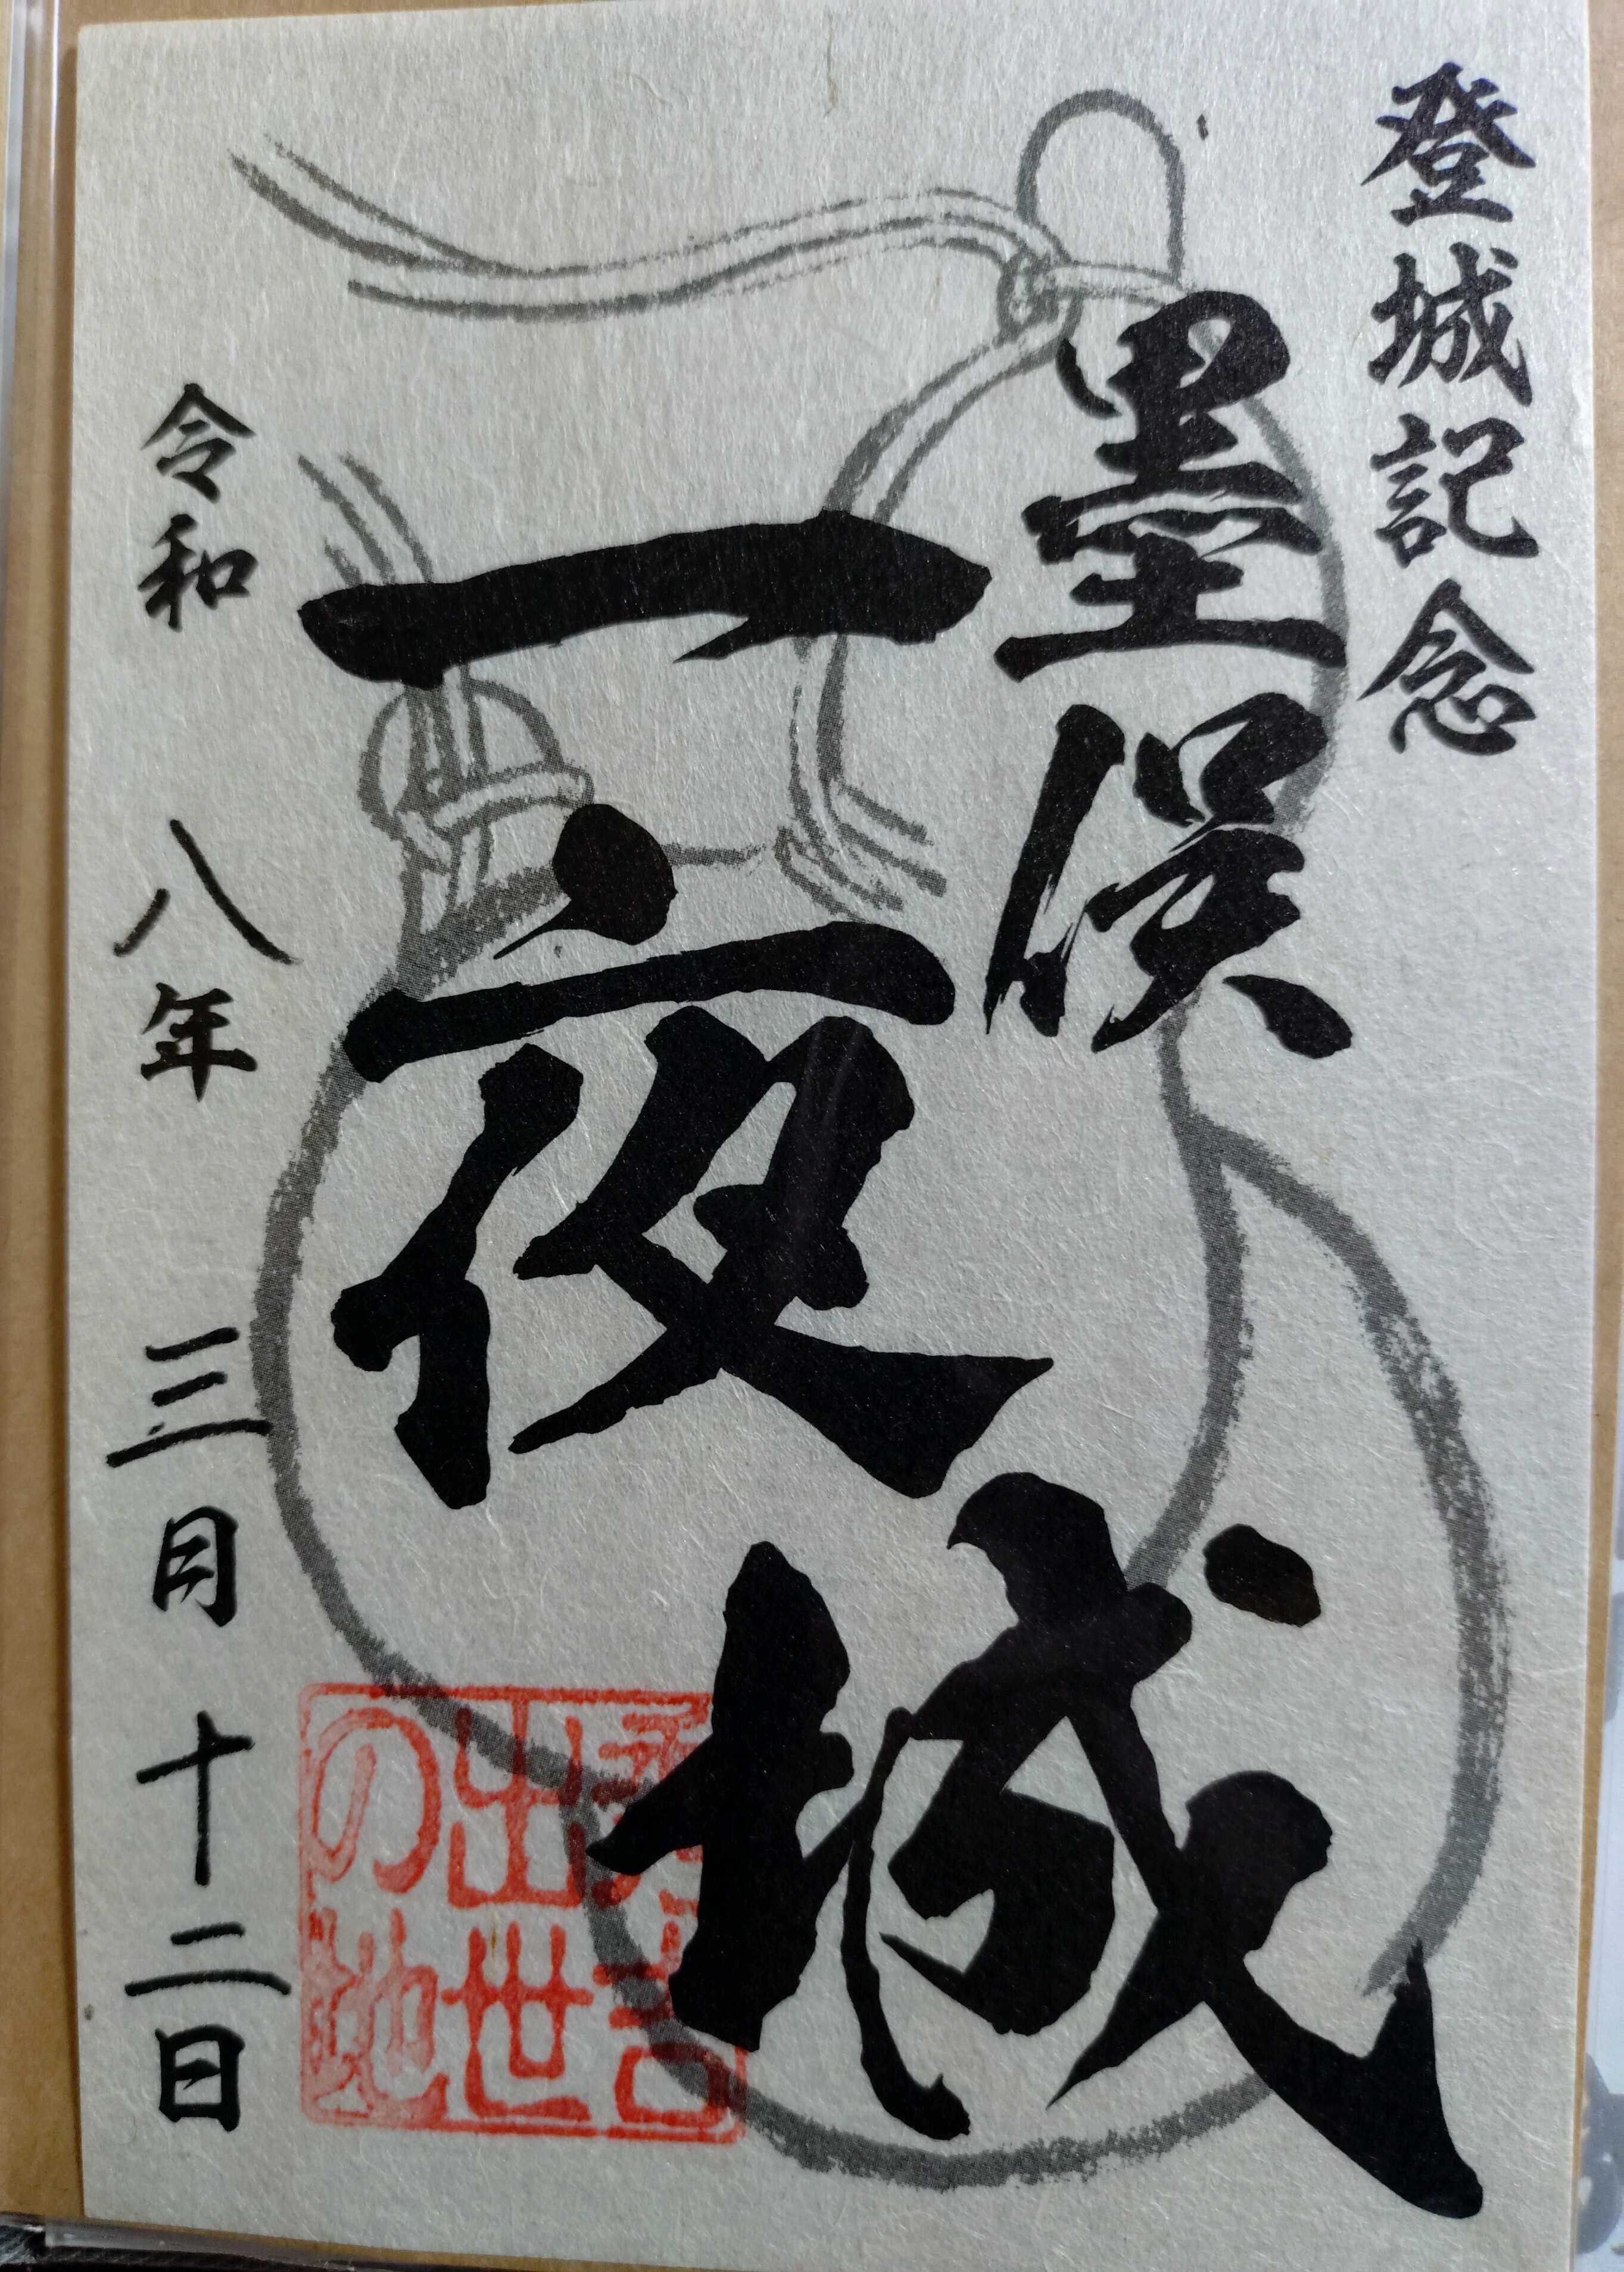 登城記念
墨俣
一夜城
令和八年三月十二日
秀吉
出世
の地